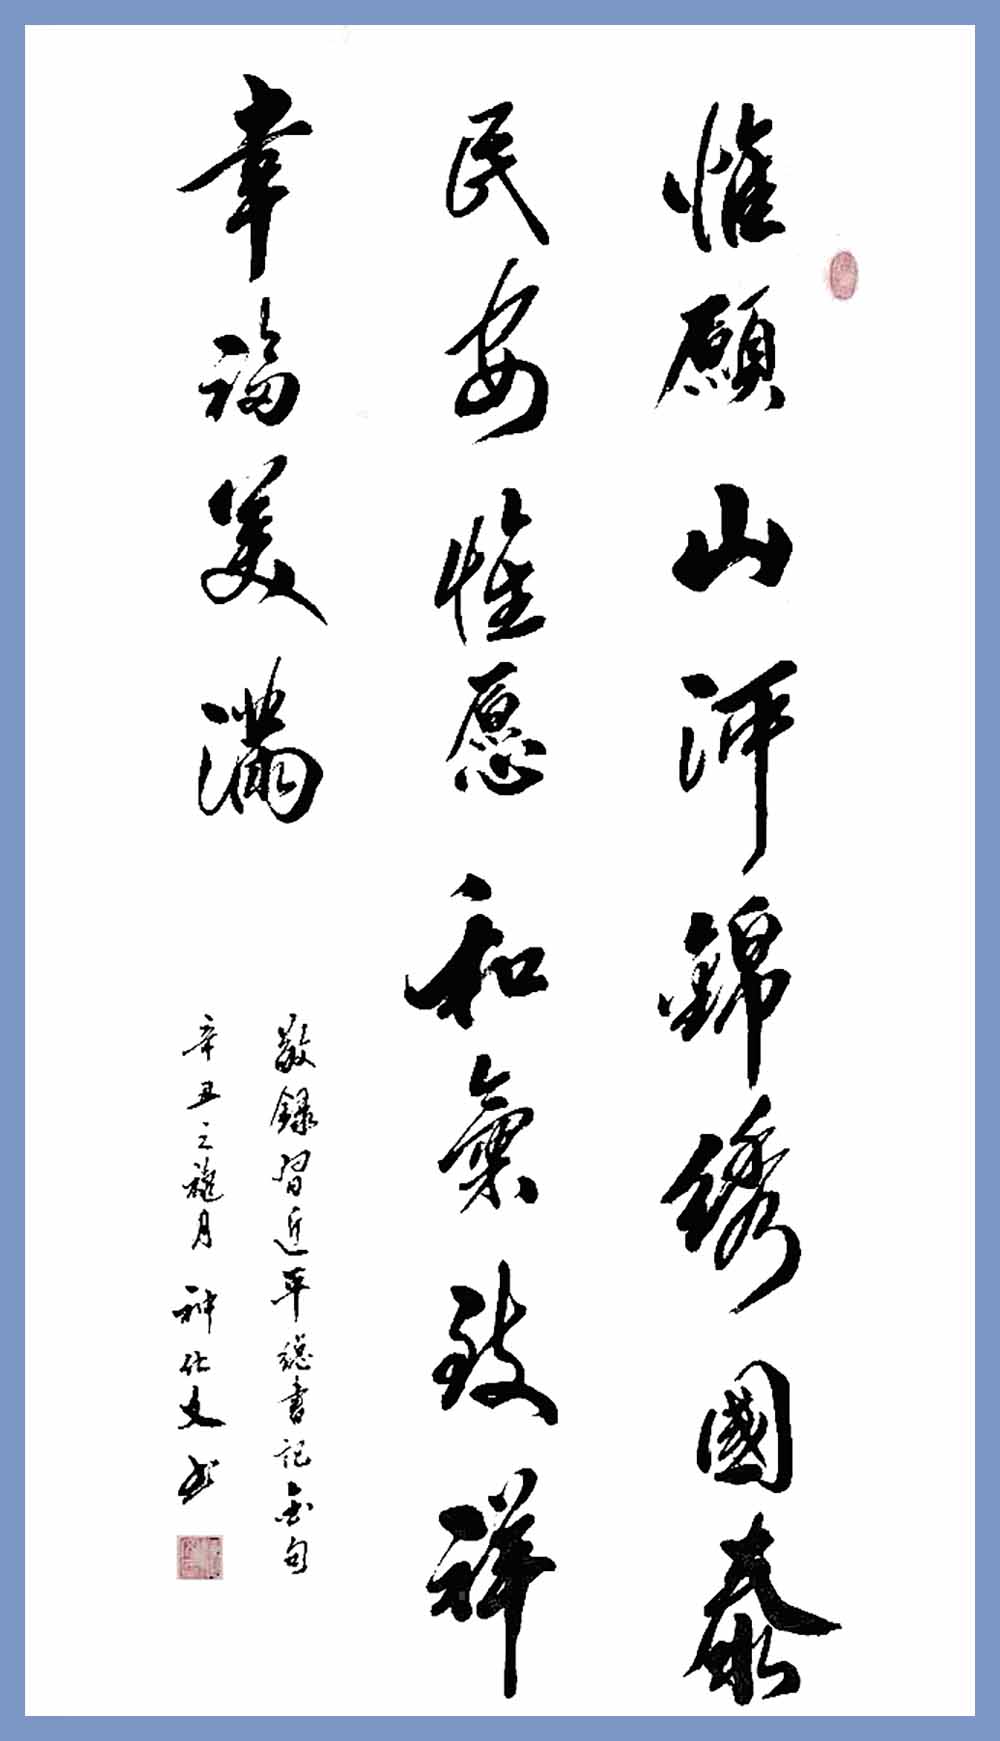 惟願山河錦绣國泰
民安惟愿和氣致祥
幸福美滿
敬録習近平總書記金句
辛丑之龍月神仕文书